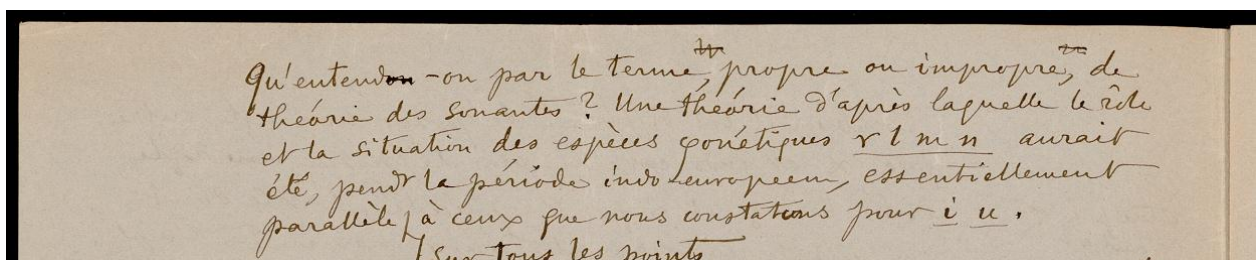 Qu'entend-on par le terme, propre ou impropre, de
théorie des sonantes? Une théorie d'après laquelle le rôle
et la situation des espèces fonétiques r l m n aurait
été, pendt la période indo-européenn, essentiellement
parallèle à ceux que nous constatons pour i u.
sur tous les points